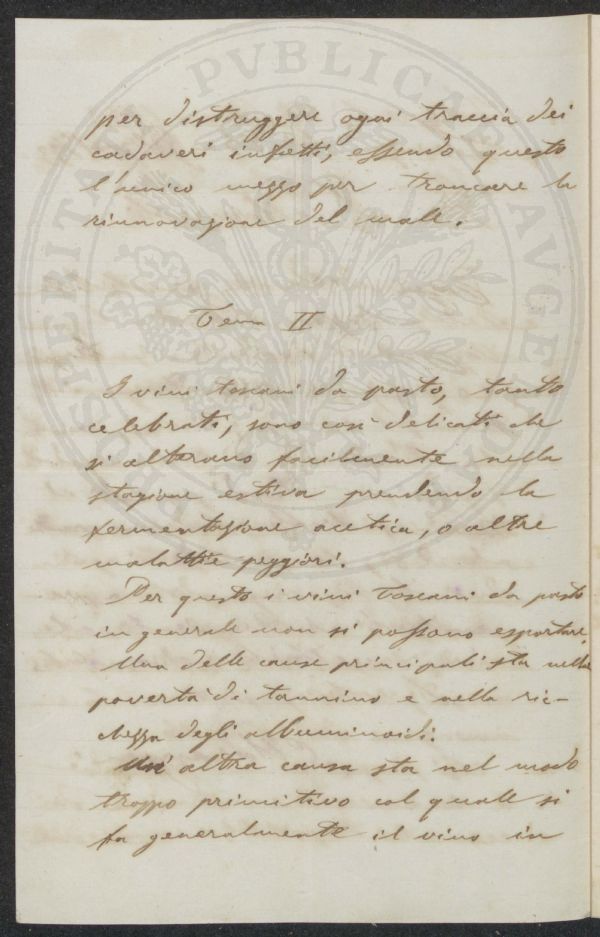 per distruggere ogni traccia dei
cadaveri infetti, essendo questo
l'unico mezzo per troncare la
rinnovazione del male.
Tema II
I vini toscani da pasto, tanto
celebrati, sono così delicati che
si alterano facilmente nella
stagione estiva prendendo la
fermentazione acetica, o altre
malattie peggiori.
Per questo i vini Toscani da pasto
in generale non si possono esportare.
Una delle cause principali sta nella
povertà di tannino e nella ric-
chezza degli albuminoidi.
Un' altra causa sta nel modo
troppo primitivo col quale si
fa generalmente il vino in
PROSPERITATI PVBLICAE AVGENDAE